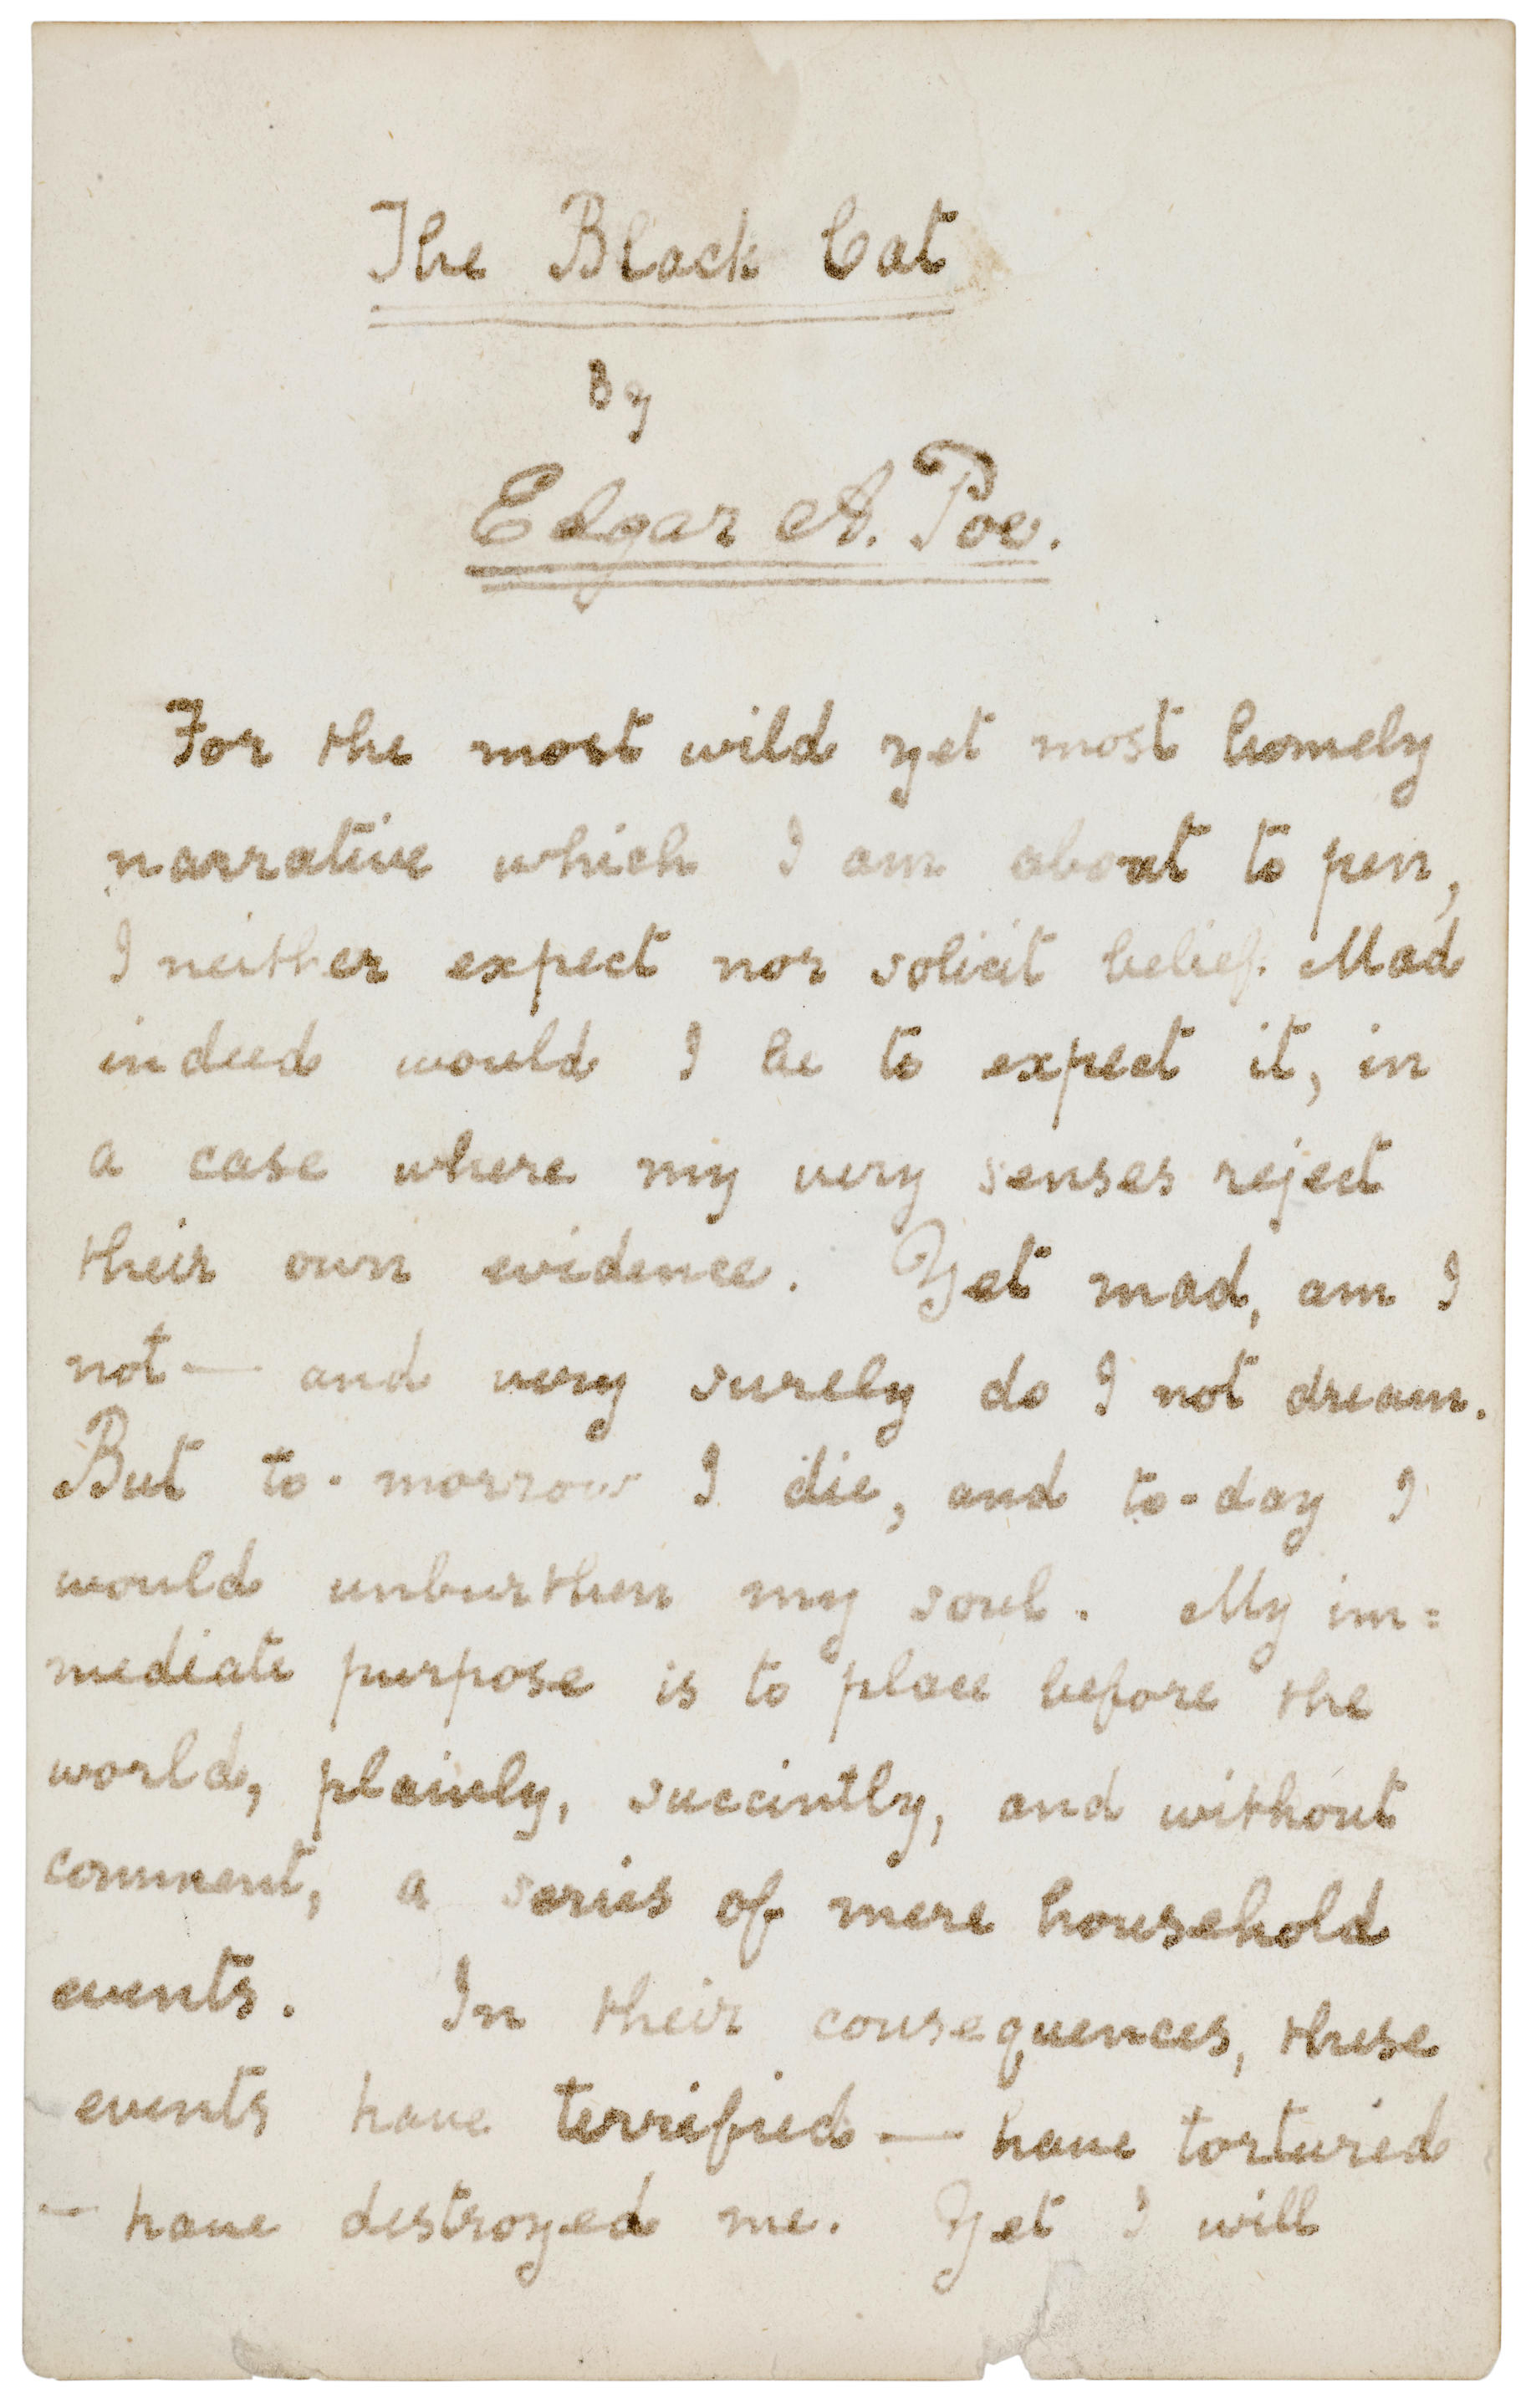 The Black Cat
By
Edgar A. Poe.
For the most wild yet most homely
narrative which I am about to pen,
I neither expect nor solicit belief. Mad
indeed would I be to expect it, in
a case where my very senses reject
their own evidence. Yet mad, am I
not — and very surely do I not dream.
But to-morrow I die, and to-day I
would unburthen my soul. My im=
mediate purpose is to place before the
world, plainly, succintly, and without
comment, a series of mere household
events. In their consequences, these
events have terrified — have tortured
— have destroyed me. Yet I will